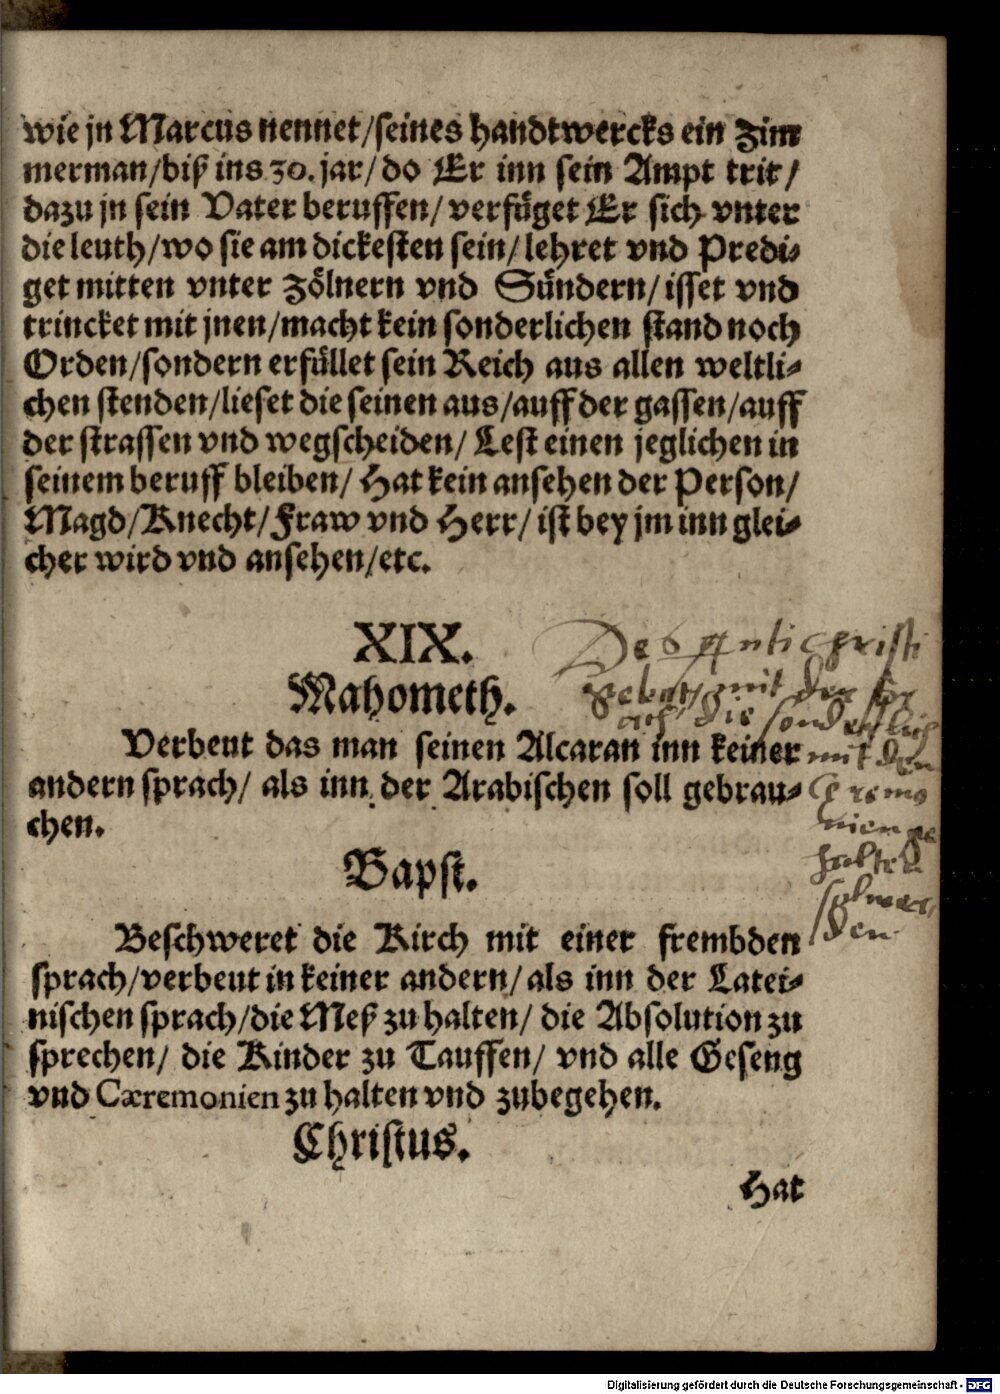 wie jn Marcus nennet/seines handtwercks ein Zim
merman/biß ins 30. jar/do Er inn sein Ampt trit/
dazu jn sein Vater beruffen/verfüget Er sich vnter
die leuth/wo sie am dickesten sein/lehret vnd Predi-
get mitten vnter Zölnern vnd Sündern/isset vnd
trincket mit jnen/macht kein sonderlichen stand noch
Orden/sondern erfüllet sein Reich aus allen weltli-
chen stenden/lieset die seinen aus/auff der gassen/auff
der strassen vnd wegscheiden/Lest einen jeglichen in
seinem beruff bleiben/Hat kein ansehen der Person/
Magd/Knecht/Fraw vnd Herr/ist bey jm inn glei-
cher wird vnd ansehen/etc.
XIX.
Mahometh.
Verbeut das man seinen Alcaran inn keiner
andern sprach/ als inn der Arabischen soll gebrau-
chen.
Bapst.
Beschweret die Kirch mit einer frembden
sprach/verbeut in keiner andern/als inn der Latei-
nischen sprach/die Meß zu halten/ die Absolution zu
sprechen/ die Kinder zu Tauffen/ vnd alle Geseng
vnd Cæremonien zu halten vnd zubegehen.
Christus.
Hat
Des Antichristi
mit der
die sonderlich
mit den
Ceremo
nien ge
halten
sol wer
den
Digitalisierung gefördert durch die Deutsche Forschungsgemeinschaft - DFG